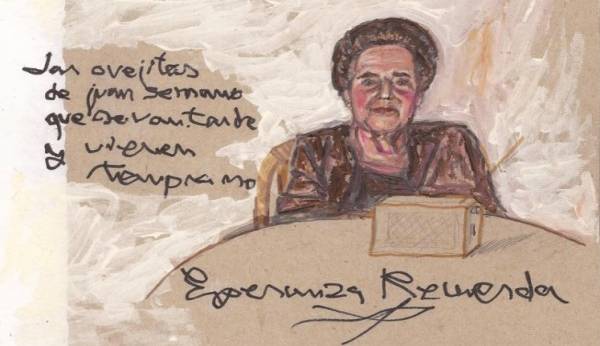 Las ovejitas
de juan serrano
que se van tarde
y vienen
temprano
Esperanza Recuerda